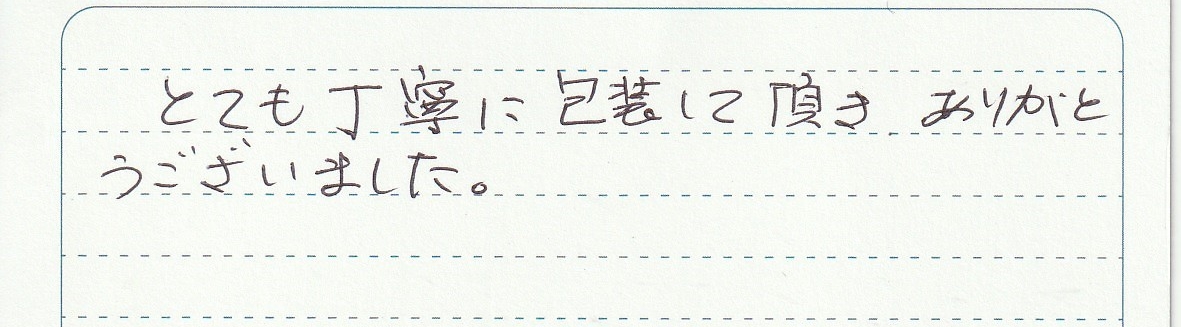 とても丁寧に包装して頂き、ありがと
うございました。